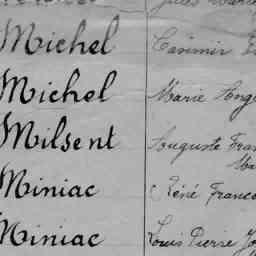 Michel Casimir
Michel Marie Ange
Milsent Auguste Fran
Miniac René Franco
Miniac Louis Pierre Jo